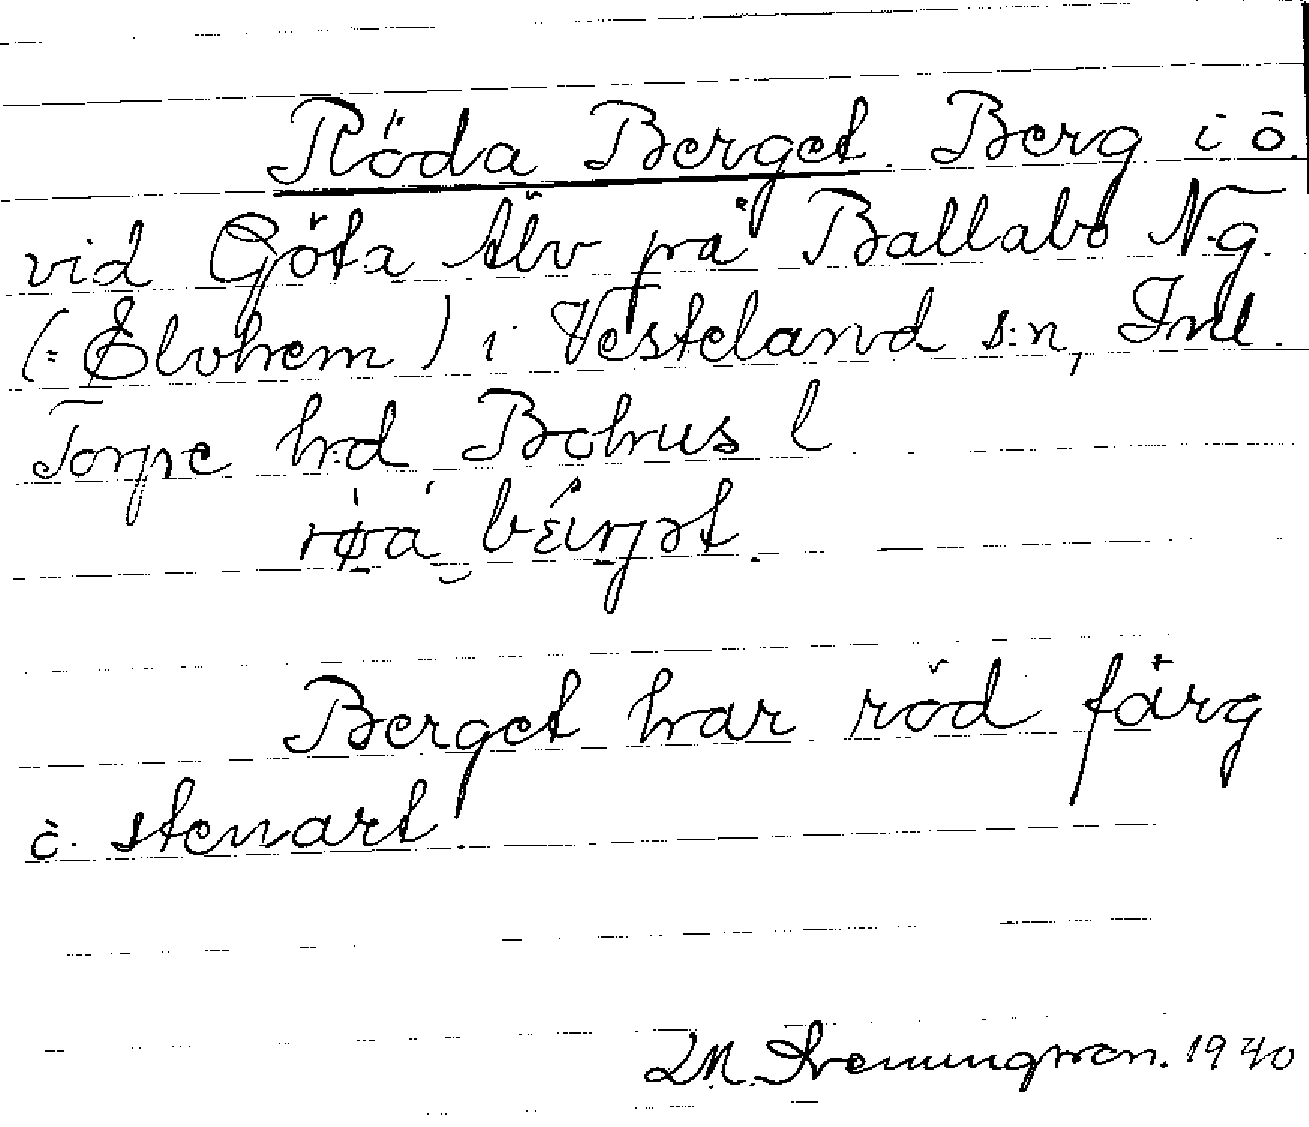 Röda Berget. Berg i ö.
vid Göta älv på Ballabo N.g.
(: Elvhem) i Vesteland s:n, Inl.
Torpe h:d Bohus l
Berget har röd färg
o. stenart.
1940